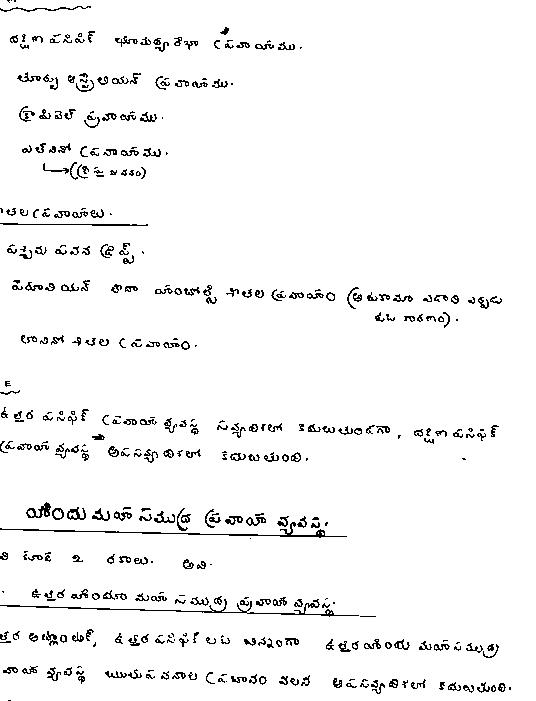 దక్షిణ పసిఫిక్ భూమధ్యరేఖా ప్రవాహము.
తూర్పు ఆస్ట్రేలియన్ ప్రవాహము.
క్రామవెల్ ప్రవాహము.
ఎల్‌నినో ప్రవాహము.
శీతల ప్రవాహాలు.
పశ్చిమ పవన డ్రిఫ్ట్.
పెరూవియన్ లేదా హంబోల్ట్ శీతల ప్రవాహం (అటకామా ఎడారి ఏర్పడు
టకు కారణం).
లానినో శీతల ప్రవాహం.
E
ఉత్తర పసిఫిక్ ప్రవాహ వ్యవస్థ సవ్యదిశలో కదులుతుండగా, దక్షిణ పసిఫిక్
ప్రవాహ వ్యవస్థ అపసవ్యదిశలో కదులుతుంది.
హిందు మహాసముద్ర ప్రవాహ వ్యవస్థ.
వి కూడా 2 రకాలు. అవి.
ఉత్తర హిందూ మహా సముద్ర ప్రవాహ వ్యవస్థ.
త్తర అట్లాంటిక్, ఉత్తర పసిఫిక్ లకు భిన్నంగా ఉత్తర హిందు మహాసముద్ర
వాహ వ్యవస్థ ఋతుపవనాల ప్రభావం వలన అపసవ్యదిశలో కదులుతుంది.